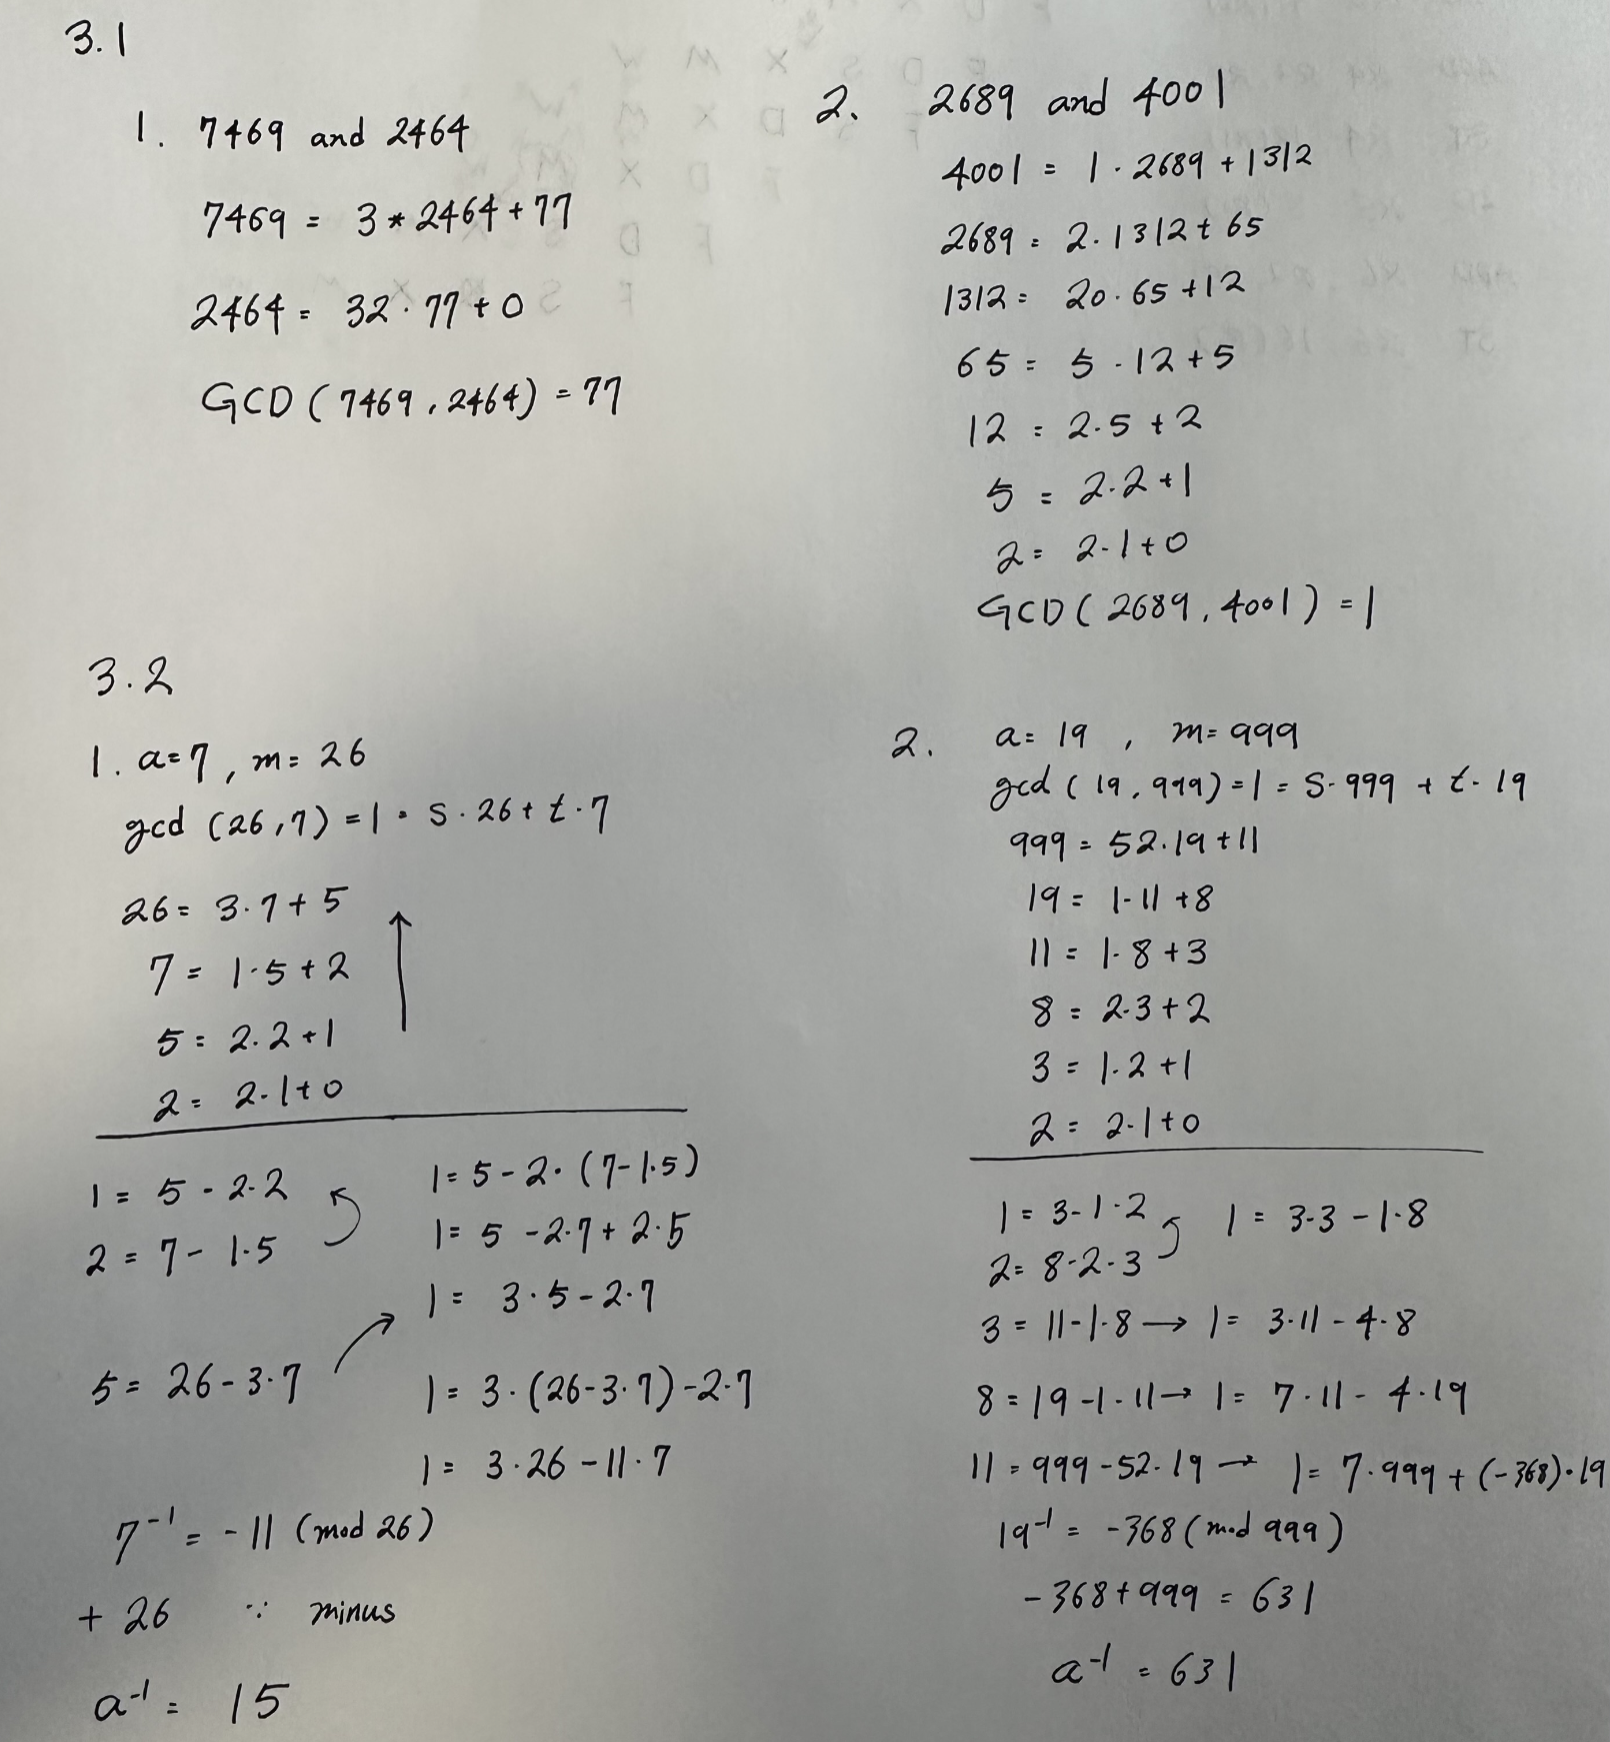 3.1
1. 7469 and 2464
7469 = 3 * 2464 + 77
2464 = 32 · 77 + 0
GCD ( 7469 , 2464 ) = 77
2. 2689 and 4001
4001 = 1 · 2689 + 1312
2689 = 2 · 1312 + 65
1312 = 20 · 65 + 12
65 = 5 · 12 + 5
12 = 2 · 5 + 2
5 = 2 · 2 + 1
2 = 2 · 1 + 0
GCD ( 2689 , 4001 ) = 1
3.2
1. a = 7 , m = 26
gcd (26 , 7) = 1 = S · 26 + t · 7
26 = 3 · 7 + 5
7 = 1 · 5 + 2
5 = 2 · 2 + 1
2 = 2 · 1 + 0
1 = 5 - 2 · 2
2 = 7 - 1 · 5
1 = 5 - 2 · (7 - 1 · 5)
1 = 5 - 2 · 7 + 2 · 5
1 = 3 · 5 - 2 · 7
5 = 26 - 3 · 7
1 = 3 · (26 - 3 · 7) - 2 · 7
1 = 3 · 26 - 11 · 7
7⁻¹ = -11 (mod 26)
+ 26 ∵ minus
a⁻¹ = 15
2. a = 19 , m = 999
gcd ( 19 , 999 ) = 1 = S · 999 + t · 19
999 = 52 · 19 + 11
19 = 1 · 11 + 8
11 = 1 · 8 + 3
8 = 2 · 3 + 2
3 = 1 · 2 + 1
2 = 2 · 1 + 0
1 = 3 - 1 · 2
2 = 8 - 2 · 3
1 = 3 · 3 - 1 · 8
3 = 11 - 1 · 8 → 1 = 3 · 11 - 4 · 8
8 = 19 - 1 · 11 → 1 = 7 · 11 - 4 · 19
11 = 999 - 52 · 19 → 1 = 7 · 999 + (-368) · 19
19⁻¹ = -368 (mod 999)
-368 + 999 = 631
a⁻¹ = 631